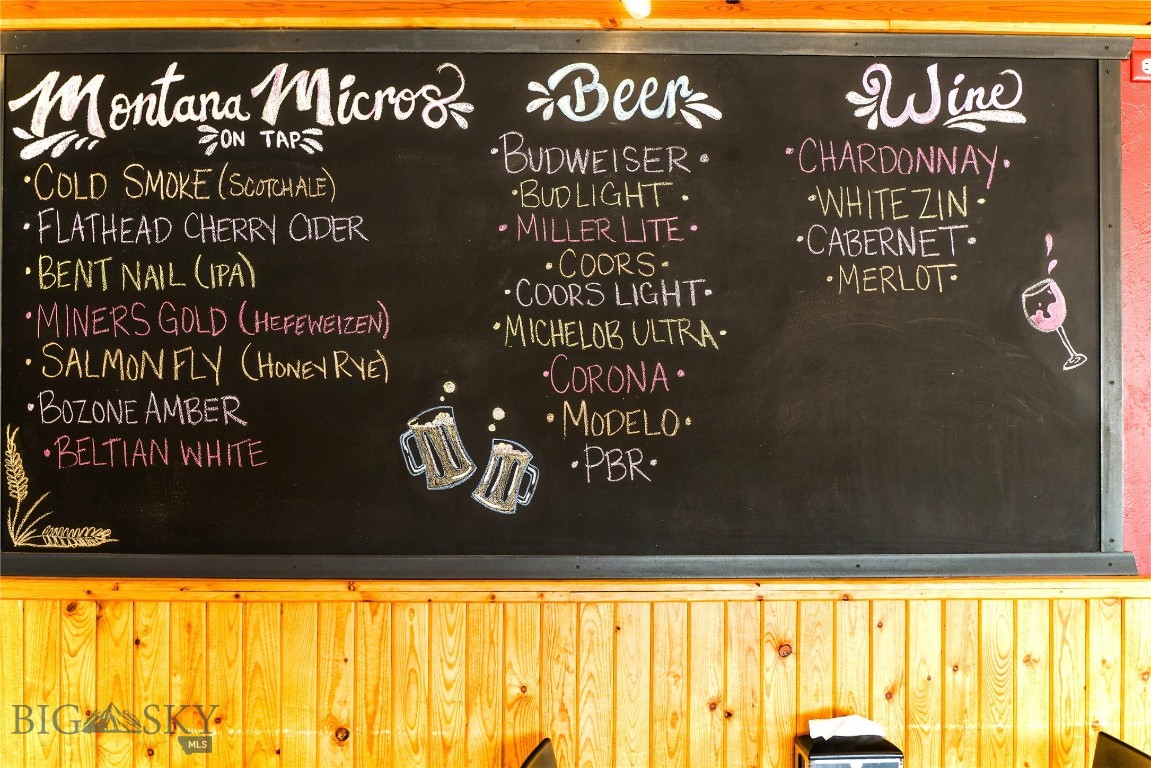 Montana Micros
ON TAP
• COLD SMOKE (SCOTCH ALE)
• FLATHEAD CHERRY CIDER
• BENT NAIL (IPA)
• MINERS GOLD (HEFEWEIZEN)
• SALMON FLY (HONEY RYE)
• BOZONE AMBER
• BELTIAN WHITE
Beer
• BUDWEISER •
• BUD LIGHT •
• MILLER LITE •
• COORS •
• COORS LIGHT •
• MICHELOB ULTRA •
• CORONA •
• MODELO •
• PBR •
Wine
• CHARDONNAY •
• WHITE ZIN •
• CABERNET •
• MERLOT •
BIG SKY
MLS